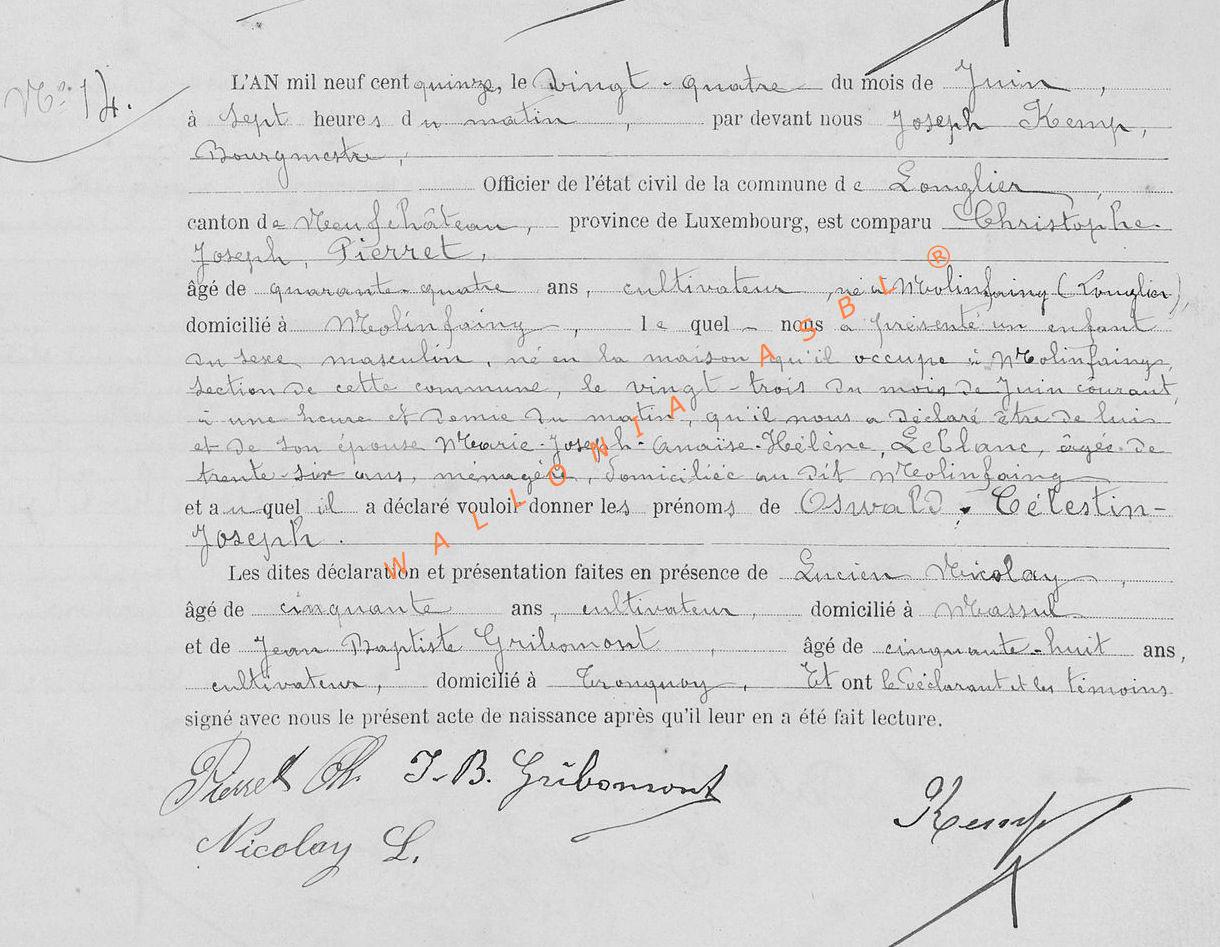 Nº 14.
L'AN mil neuf cent quinze, le vingt-quatre du mois de Juin,
à sept heures du matin, par devant nous Joseph Kemp,
Bourgmestre,
Officier de l'état civil de la commune de Longlier,
canton de Neufchâteau, province de Luxembourg, est comparu Christophe-
Joseph, Pierret,
âgé de quarante-quatre ans, cultivateur, né à Molinfaing (Longlier),
domicilié à Molinfaing, lequel nous a présenté un enfant
du sexe masculin, né en la maison qu'il occupe à Molinfaing,
section de cette commune, le vingt-trois du mois de Juin courant,
à une heure et demie du matin, qu'il nous a déclaré être de lui
et de son épouse Marie-Joseph-Anaïse-Hélène, Leblanc, âgée de
trente-six ans, ménagère, domiciliée au dit Molinfaing
et auquel il a déclaré vouloir donner les prénoms de Oswald, Célestin-
Joseph.
Les dites déclaration et présentation faites en présence de Lucien Nicolay,
âgé de cinquante ans, cultivateur, domicilié à Massul
et de Jean Baptiste Gribomont, âgé de cinquante-huit ans,
cultivateur, domicilié à Tronquoy, Et ont le déclarant et les témoins
signé avec nous le présent acte de naissance après qu'il leur en a été fait lecture.
Pierret Ch. J-B. Gribomont
Nicolay L.
Kemp
WALLONIA ASBL ®